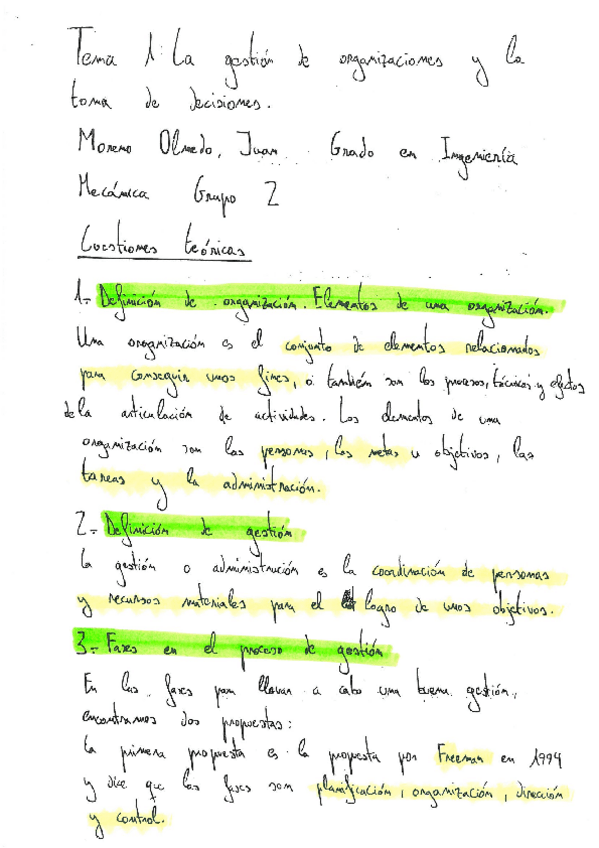 Tema 1: La gestión de organizaciones y la
toma de decisiones.
Moreno Olmedo, Juan Grado en Ingeniería
Mecánica Grupo 2
Cuestiones teóricas
1- Definición de organización. Elementos de una organización.
Una organización es el conjunto de elementos relacionados
para conseguir unos fines, o también son los procesos, técnicas y efectos
de la articulación de actividades. Los elementos de una
organización son las personas, las metas u objetivos, las
tareas y la administración.
2- Definición de gestión
La gestión o administración es la coordinación de personas
y recursos materiales para el logro de unos objetivos.
3- Fases en el proceso de gestión
En las fases para llevar a cabo una buena gestión,
encontramos dos propuestas:
La primera propuesta es la propuesta por Freeman en 1994
y dice que las fases son planificación, organización, dirección
y control.